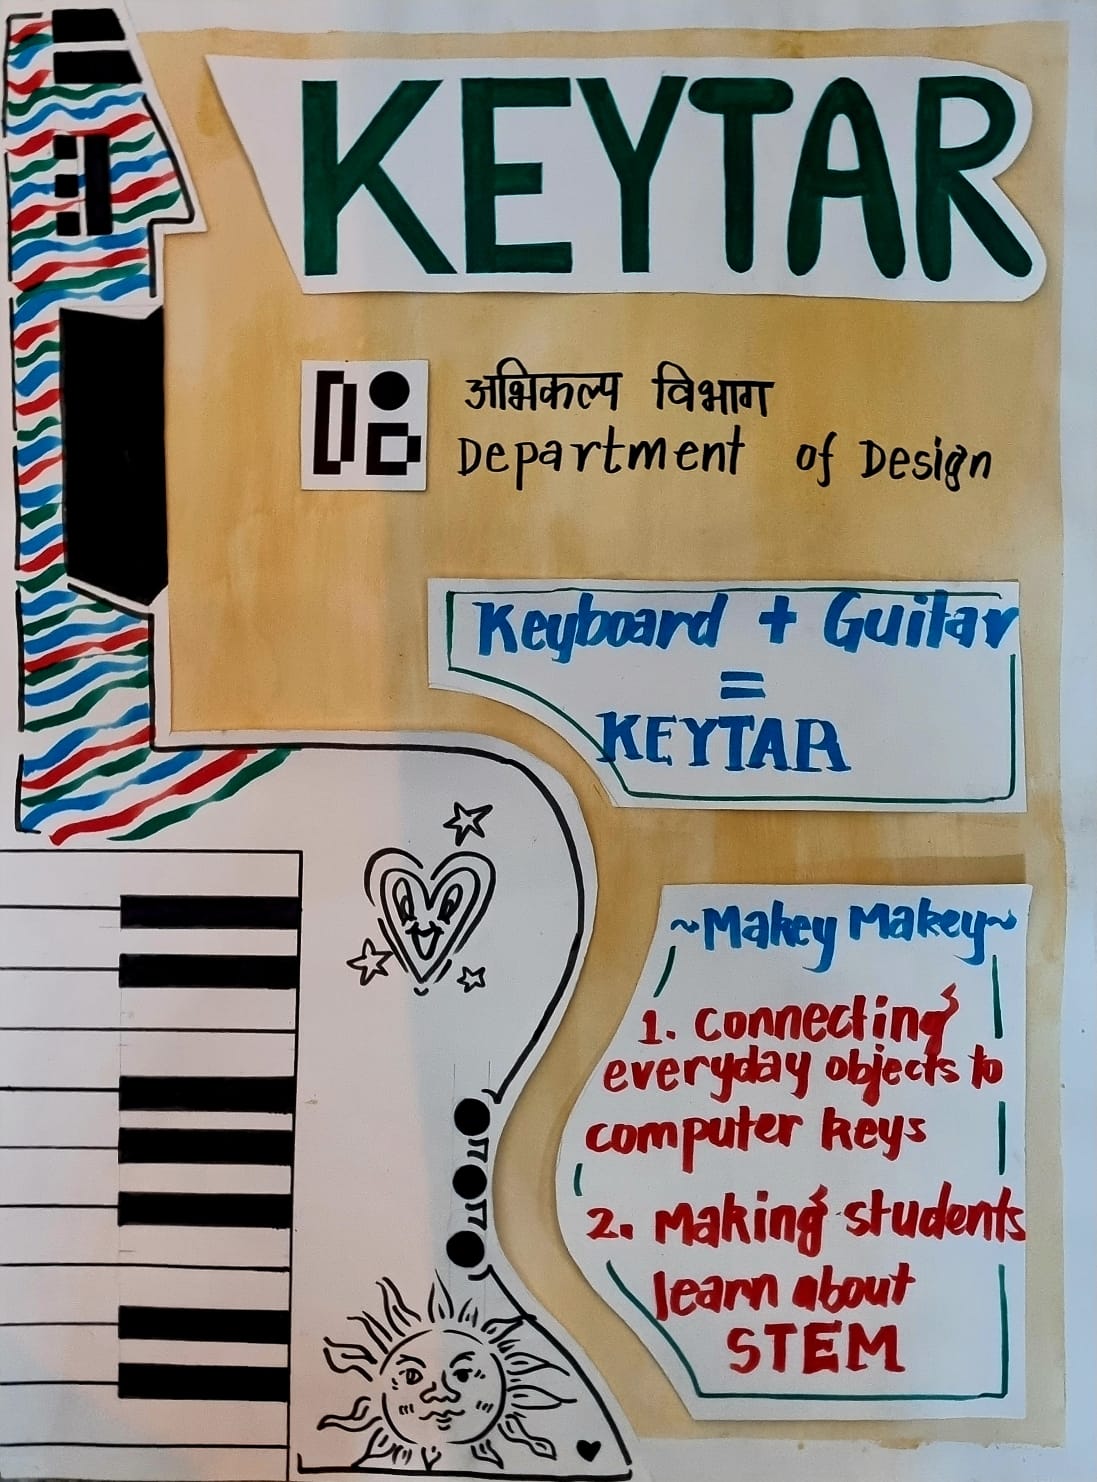 KEYTAR
अभिकल्प विभाग
Department of Design
Keyboard + Guitar
=
KEYTAR
~Makey Makey~
1. Connecting
everyday objects to
computer keys
2. Making students
learn about
STEM